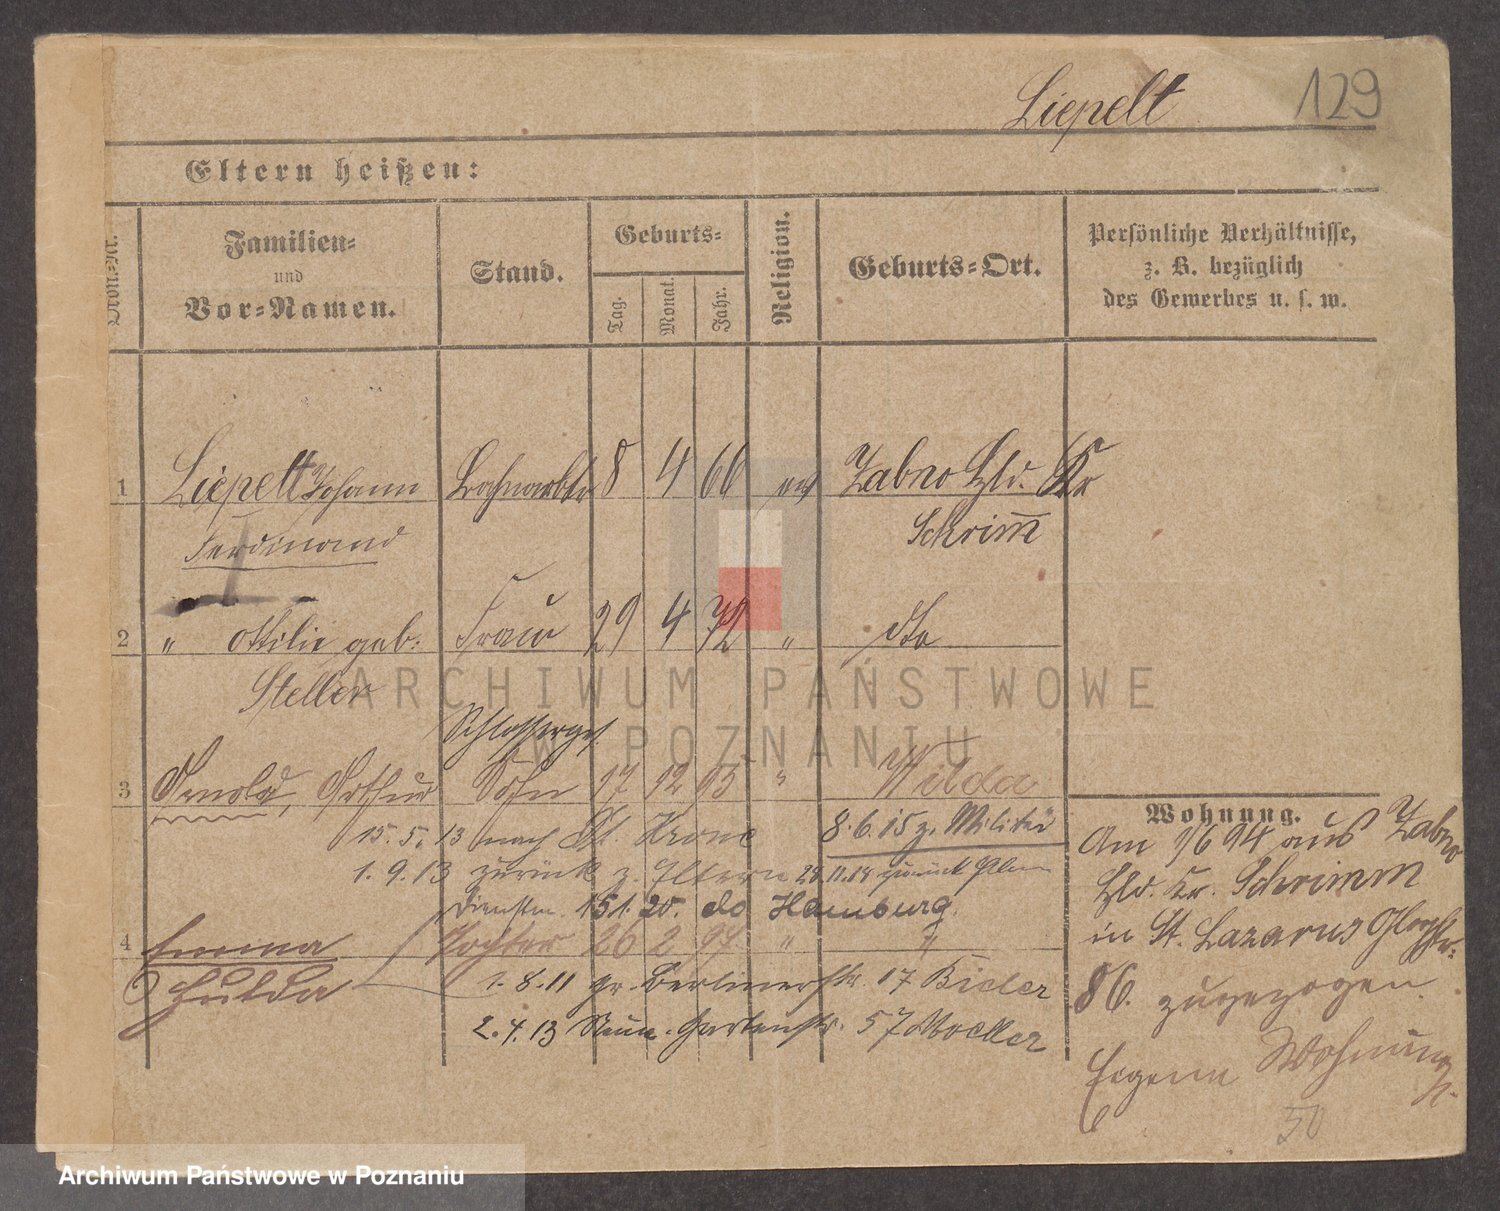 Liepelt 129
Eltern heißen:
Dron.-Nr.
Familien-
und
Vor-Namen.
Stand.
Geburts-
Tag.
Monat.
Jahr.
Religion.
Geburts-Ort.
Persönliche Verhältnisse,
z. B. bezüglich
des Gewerbes u. s. w.
1 Liepelt Johann Bahnarbtr 8 4 66 ev Zabno Hld. Kr
Ferdinand Schrimm
2 " Ottilie geb: Frau 29 4 72 " dto
Steller
Schlosserges.
3 Arnold, Arthur Sohn 17 12 93 " Wilda
15. 5. 13 nach Dt. Krone 8. 6. 15 z. Militär
1. 9. 13 zurück z. Eltern 28.11.18 zurück
Dienstm. 15 1. 20. do Hamburg.
4 Emma Tochter 26 2 97 " "
Hulda 1. 8. 11 gr. Berlinerstr. 17 Bieler
2. 4. 13 Gartenstr. 57
Wohnung.
Am 1694 aus Zabno
Hld. Kr. Schrimm
in St. Lazarus Glogstr.
86. zugezogen.
Eigene Wohnung
50
ARCHIWUM PAŃSTWOWE
W POZNANIU
Archiwum Państwowe w Poznaniu